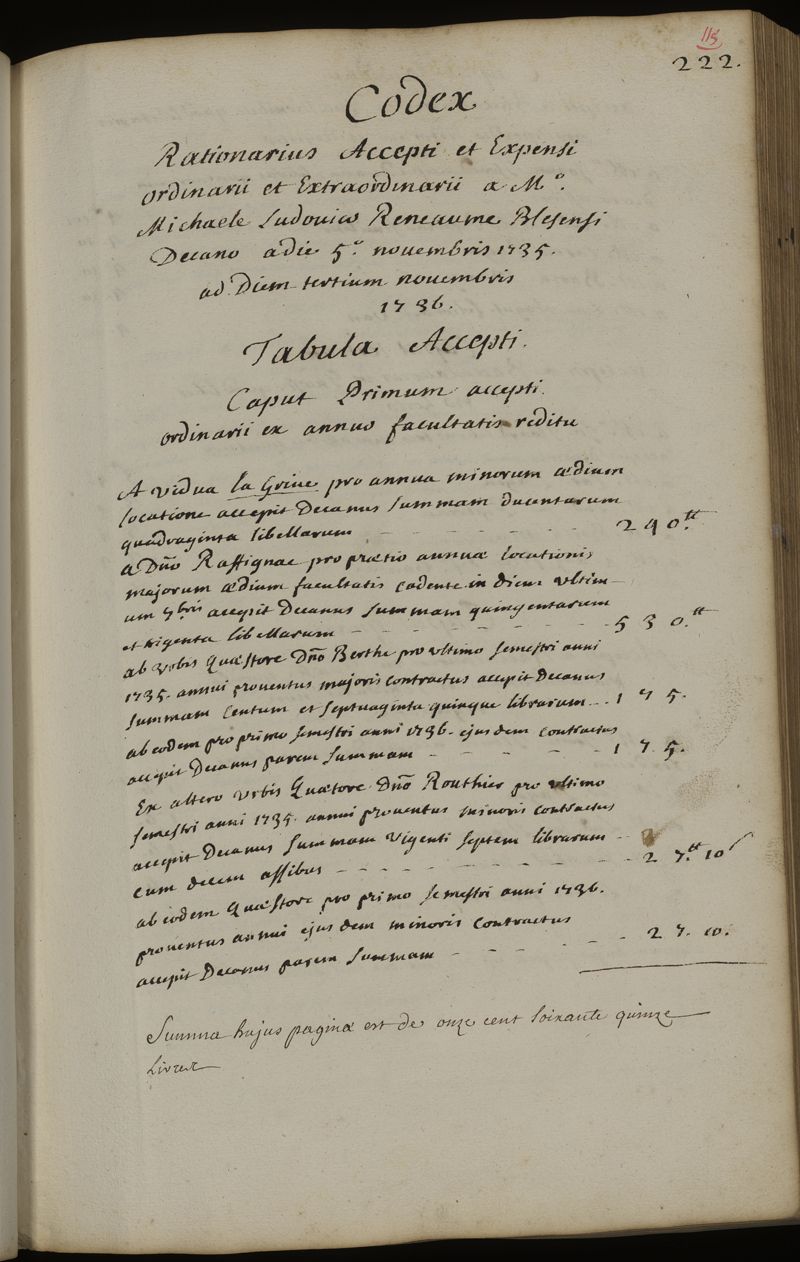 115
222.
Codex
Rationarius Accepti et Expensi
ordinarii et Extraordinarii a M.º
Michaele Ludovico Reneaume Blesensi
Decano adie 5.º novembris 1735.
ad Diem tertium novembris
1736.
Tabula Accepti.
Caput Primum accepti
ordinarii ex annuo facultatis reditu
A vidua la Grive pro annua minorum ædium
locatione accepit Decanus summam ducentarum
quadraginta libellarum - - - - - 240.tt
a Dño Raffignac pro prætio annuæ locationis
majorum ædium facultatis cadente in diem ultim-
um 7bris accepit Decanus summam quingentarum
et trigenta libellarum - - - - - 530.tt
ab urbis Quæstore Dño Berthe pro ultimo semestri anni
1735. annui proventus majoris contractus accepit Decanus
summam centum et septuaginta quinque librarum - - 175.
ab eodem pro primo semestri anni 1736. ejusdem contractus
accepit Decanus parem summam - - - - - 175.
Ex altero urbis Quætore Dño Routhier pro ultimo
semestri anni 1735. annui proventus minoris contractus
accepit Decanus summam vigenti septem librarum
cum decem assibus - - - - - 27.tt 10s
ab eodem Quæstore pro primo semestri anni 1736.
proventus annui ejusdem minoris contractus
accepit Decanus parem summam - - - - - 27. 10.
Summa hujus paginæ est de onze cent soixante quinze
Livres